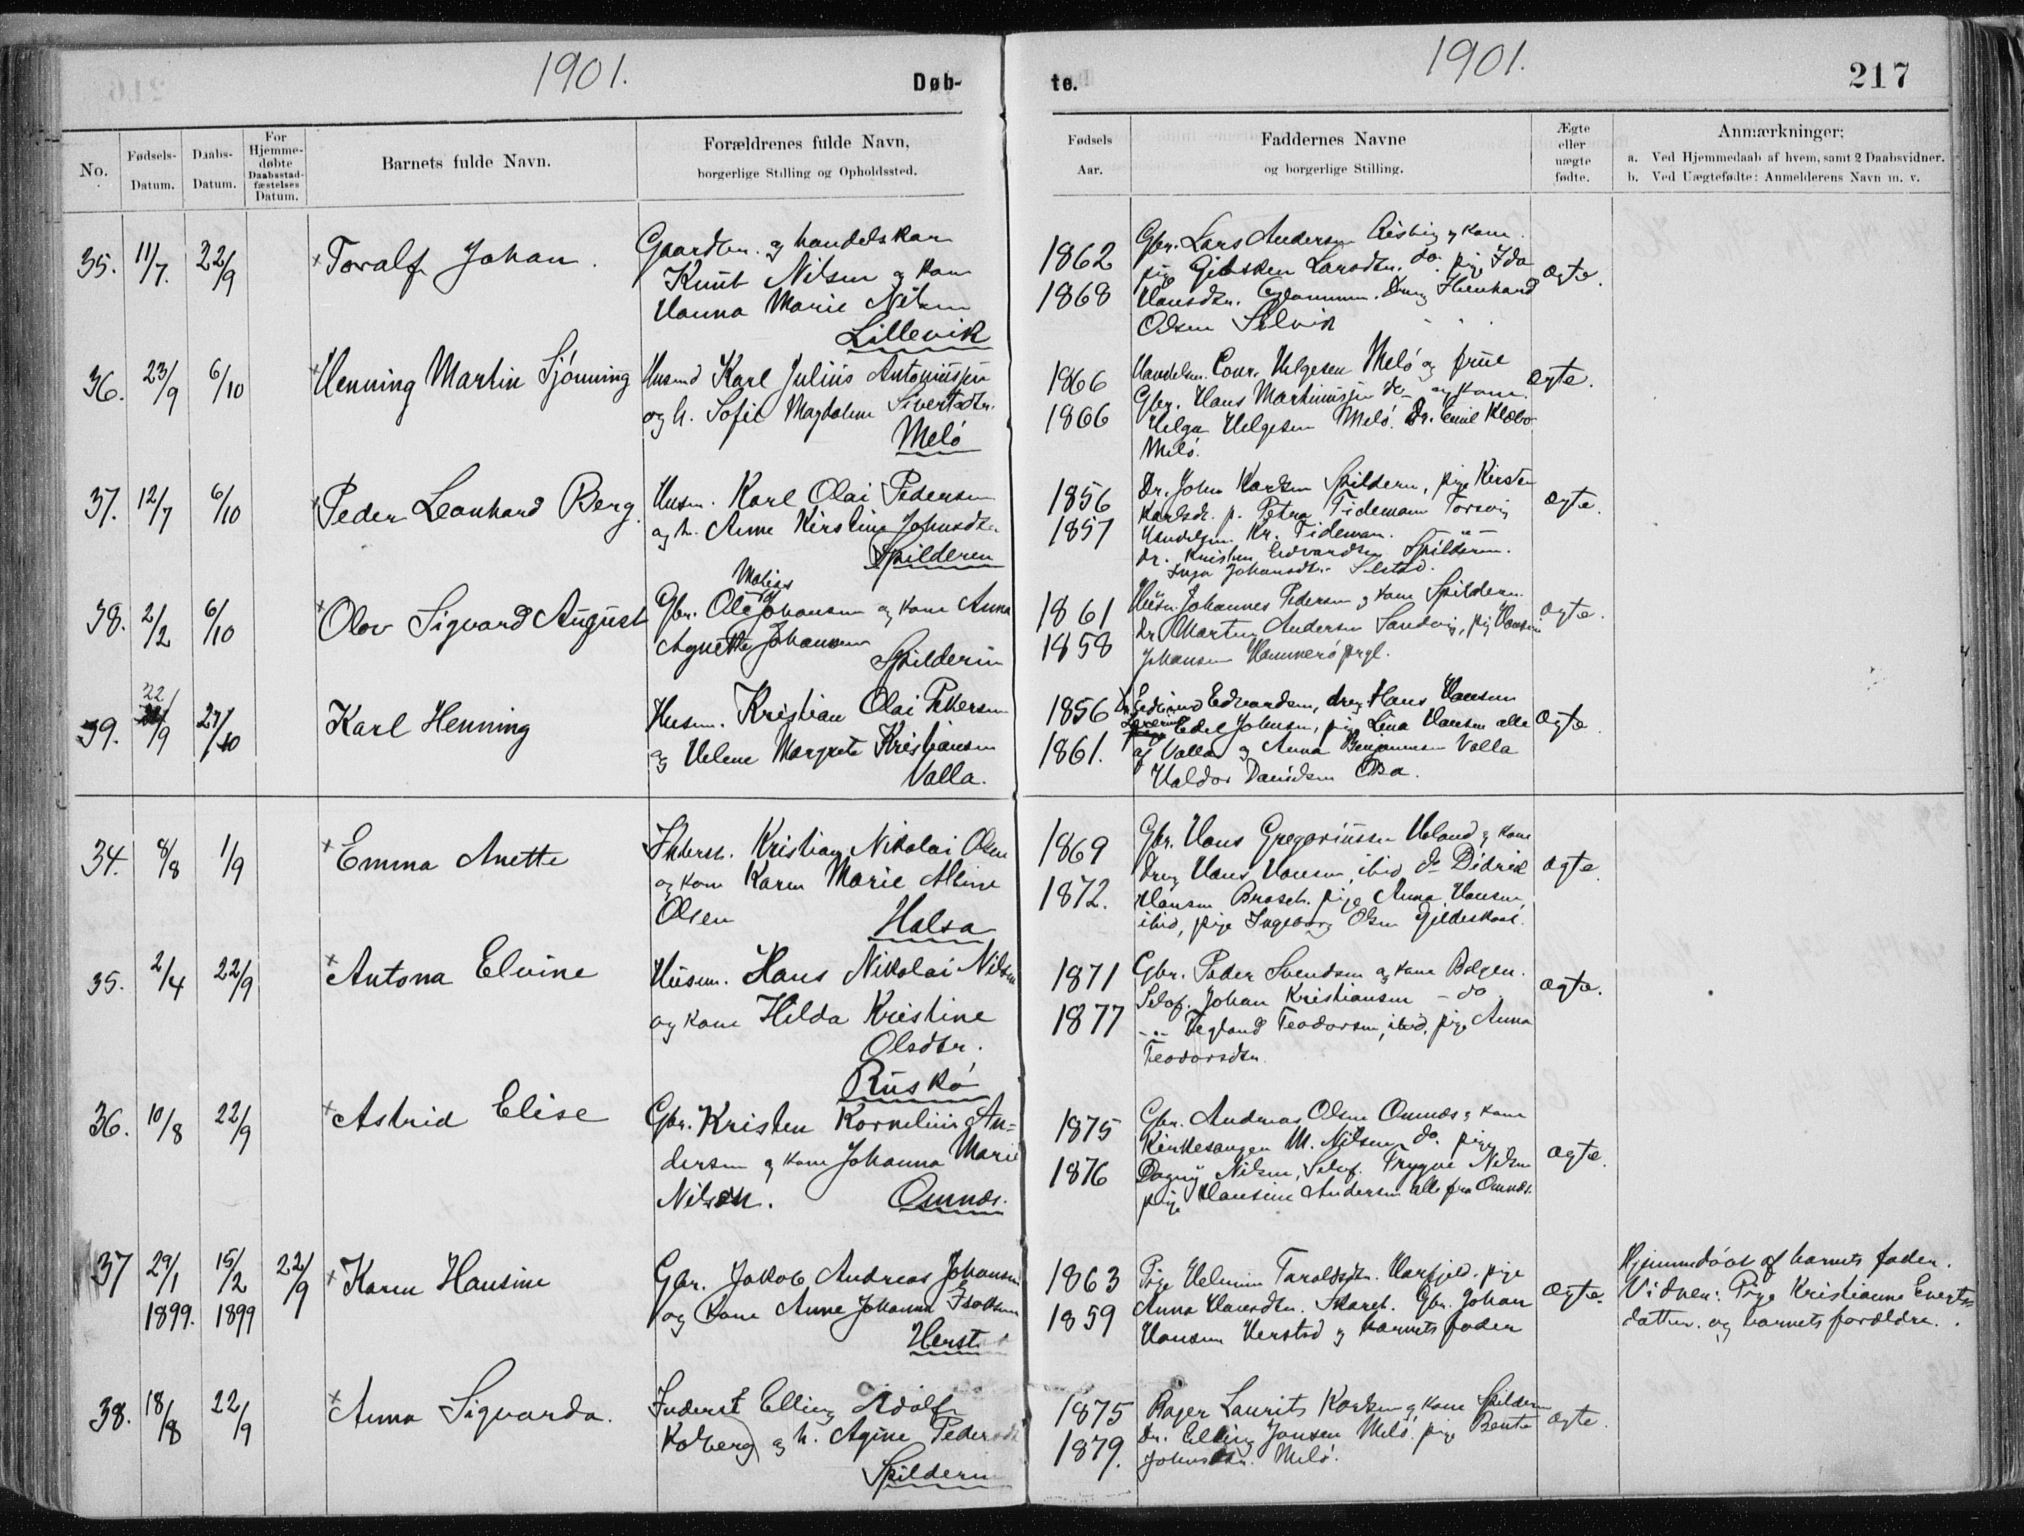 1901.
Døb-
No.
Fødsels-
Datum.
Daabs-
Datum.
For
Hjemme-
døbte
Daabsstad-
fæstelses
Datum.
Barnets fulde Navn.
Forældrenes fulde Navn,
borgerlige Stilling og Opholdssted.
35. 11/7. 22/9 Toralf Johan.
Gaardbr. og handelskar
Knut Nilsen og kone
Hanna Marie Nilsen
Lillevik
36. 23/9 6/10 Henning Martin Sjønning
Husmd Karl Julius Antoniussen
og h. Sofie Magdalene Sivertsdtr.
Melö
37. 12/7 6/10 Peder Leonhard Berg.
Husm. Karl Olai Pedersen
og h. Anne Kirstine Johnsdtr.
Spilderen
38. 2/2 6/10 Olov Sigvard August
Gbr. Ole Johansen og kone Anna
Agnette Johansen
Spilderen
39. 22/9 27/10 Karl Henning
Husm. Kristian Olai Pedersen
og Helene Margrete Kristiansen
Valla.
34. 8/8 1/9 Emma Anette
Inderst. Kristian Nikolai Olsen
og kone Karen Marie Aline
Olsen Halsa
35. 2/4 22/9 Antona Elvine
Husm. Hans Nikolai Nilsen
og kone Hilda Kristine
Olsdtr.
Ruskö
36. 10/8 22/9 Astrid Elise
Gbr. Kristen Kornelius An-
dersen og kone Johanna Marie
Nilsen. Omnæs.
37 29/1 1899. 15/2 1899 22/9 Karen Hansine
Gbr. Jakob Andreas Johansen
og kone Anne Johanna
Herst
38. 18/8 22/9 Anna Sigvarda.
Inderst Elling Adolf
Kolberg og h. Agine Peders
Spilderen
1901.
te.
217
Fødsels
Aar.
Faddernes Navne
og borgerlige Stilling.
Ægte
eller
uægte
fødte.
Anmærkninger;
a. Ved Hjemmedaab af hvem, samt 2 Daabsvidner.
b. Ved Uægtefødte: Anmelderens Navn m. v.
1862 Gbr. Lars Andersen og kone
pige Larsdtr. do. pige Ida
1868 Hansdtr. Drng
Olsen Selvik
ægte.
1866 Handelsm. Conr. Helgesen Melö og frue
Gbr. Hans Martinussen do og kone
1866 Helga Helgesen Melö. Dr. Emil Klæbo
Melö.
ægte.
1856 Dr. John Karlsen Spilderen, pige Kirsten
Karlsdr. p. Petra Tidemann Torsvig
1857 Handelsm. Kr. Tideman.
Dr. Kristen Edvardsen Spilderen.
Inga Johansdtr.
ægte.
1861 Husm. Johannes Pedersen og kone Spilderen
Dr. Martin Andersen Sandvig, pig
1858 Johansen Hammerö prgl.
ægte.
1856 Edvardsen, dreng Hans Hansen
Edel Johnsen, pige Lina Hansen alle
1861. af Valla og Anna Benjaminsen Valla
Haldor Danielsen
ægte.
1869 Gbr. Hans Gregoriussen og kone
dreng Hans Hansen ibid do Didrik
1872. Hansen Brasch. pige Anna Hansen,
ibid, pige Ingeborg Olsen Gjildeskaal.
ægte.
1871 Gbr. Peder Svendsen og kone Bolgen.
Selvf. Johan Kristiansen - do
1877 Vegland Teodorsen, ibid, pige Anna
Teodorsdtr.
ægte.
1875 Gbr. Andreas Olsen Omnæs og kone
Kirkesanger M. Nilsen do. pige
1876 Dagny Nilsen, Selvf. Trygve Nilsen
pige Hansine Andersen alle fra Omnæs.
ægte.
1863 Pige Helmine Taraldsdtr. pige
Anna Hansdtr. Gbr. Johan
1859 Hansen Herstad og barnets fader
ægte.
Hjemmedöbt af barnets fader.
Vidner: Pige Kristianne
datter og barnets forældre.
1875 Laurits Karlsen og kone Spilderen
Dr. Elling Jansen Melö. pige Bente
1879. Johnsdtr. Melö.
ægte.